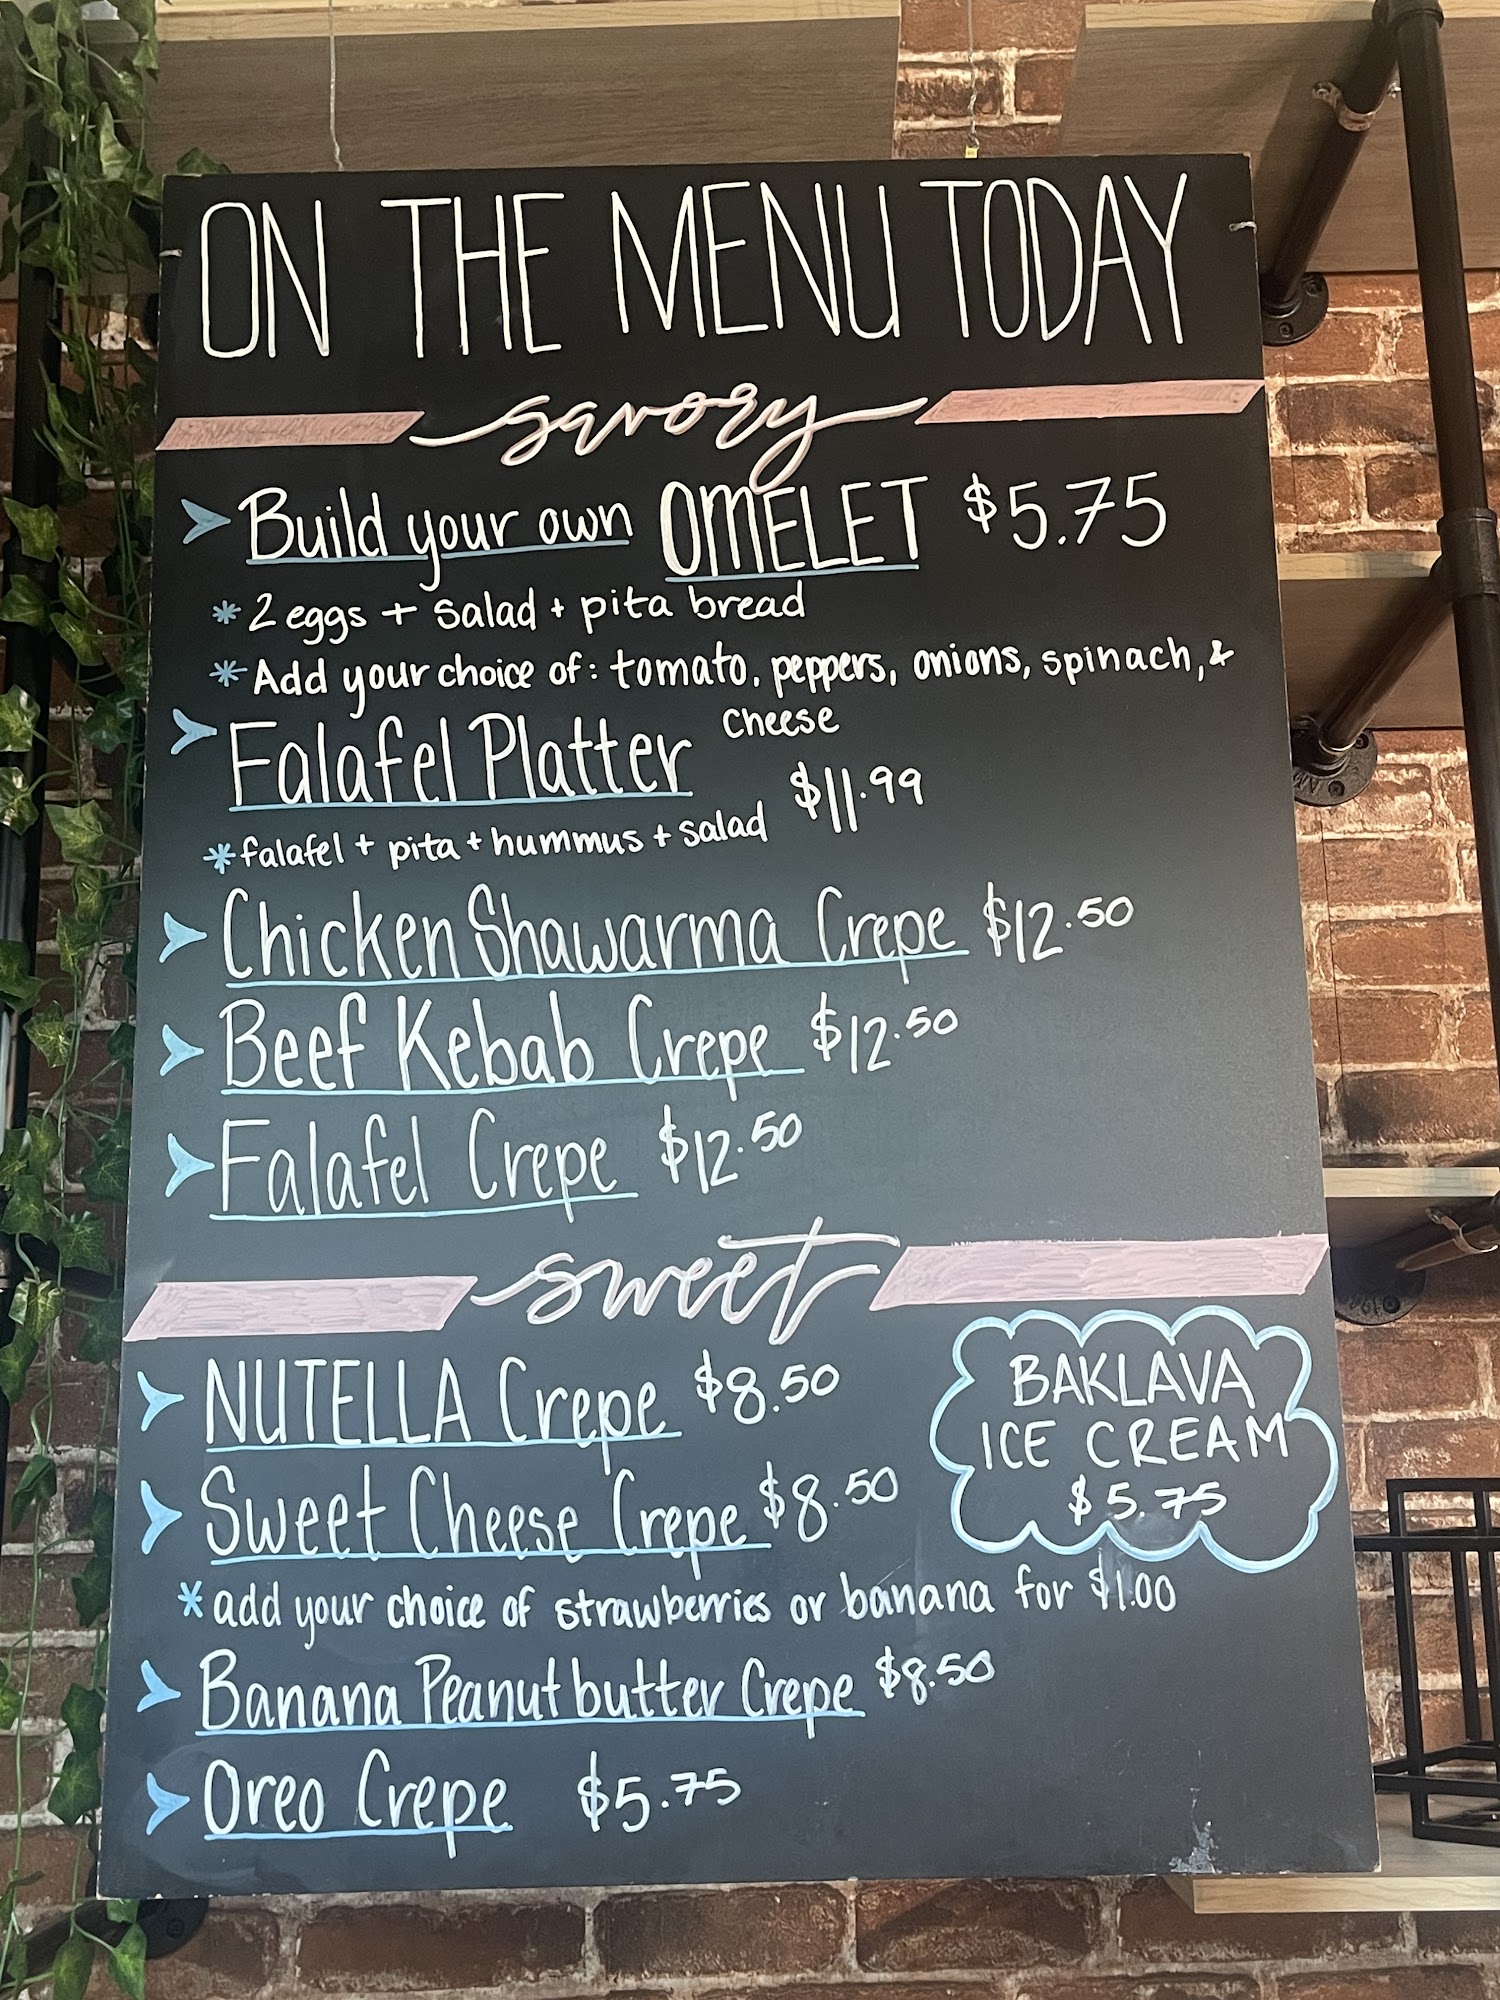 ON THE MENU TODAY
savory
Build your own OMELET $5.75
* 2 eggs + salad + pita bread
* Add your choice of: tomato, peppers, onions, spinach, &
cheese
Falafel Platter
$11.99
* falafel + pita + hummus + salad
Chicken Shawarma Crepe $12.50
Beef Kebab Crepe $12.50
Falafel Crepe $12.50
sweet
NUTELLA Crepe $8.50
Sweet Cheese Crepe $8.50
* add your choice of strawberries or banana for $1.00
Banana Peanut butter Crepe $8.50
Oreo Crepe $5.75
BAKLAVA
ICE CREAM
$5.75